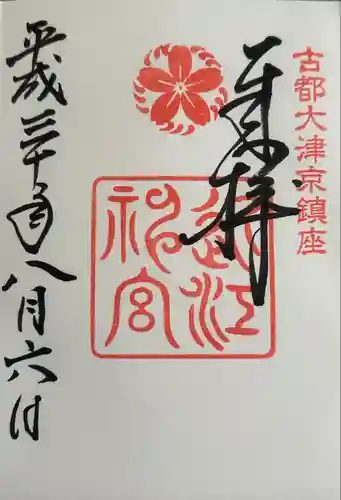 古都大津京鎮座
奉拝
近江
神宮
平成三十年八月六日